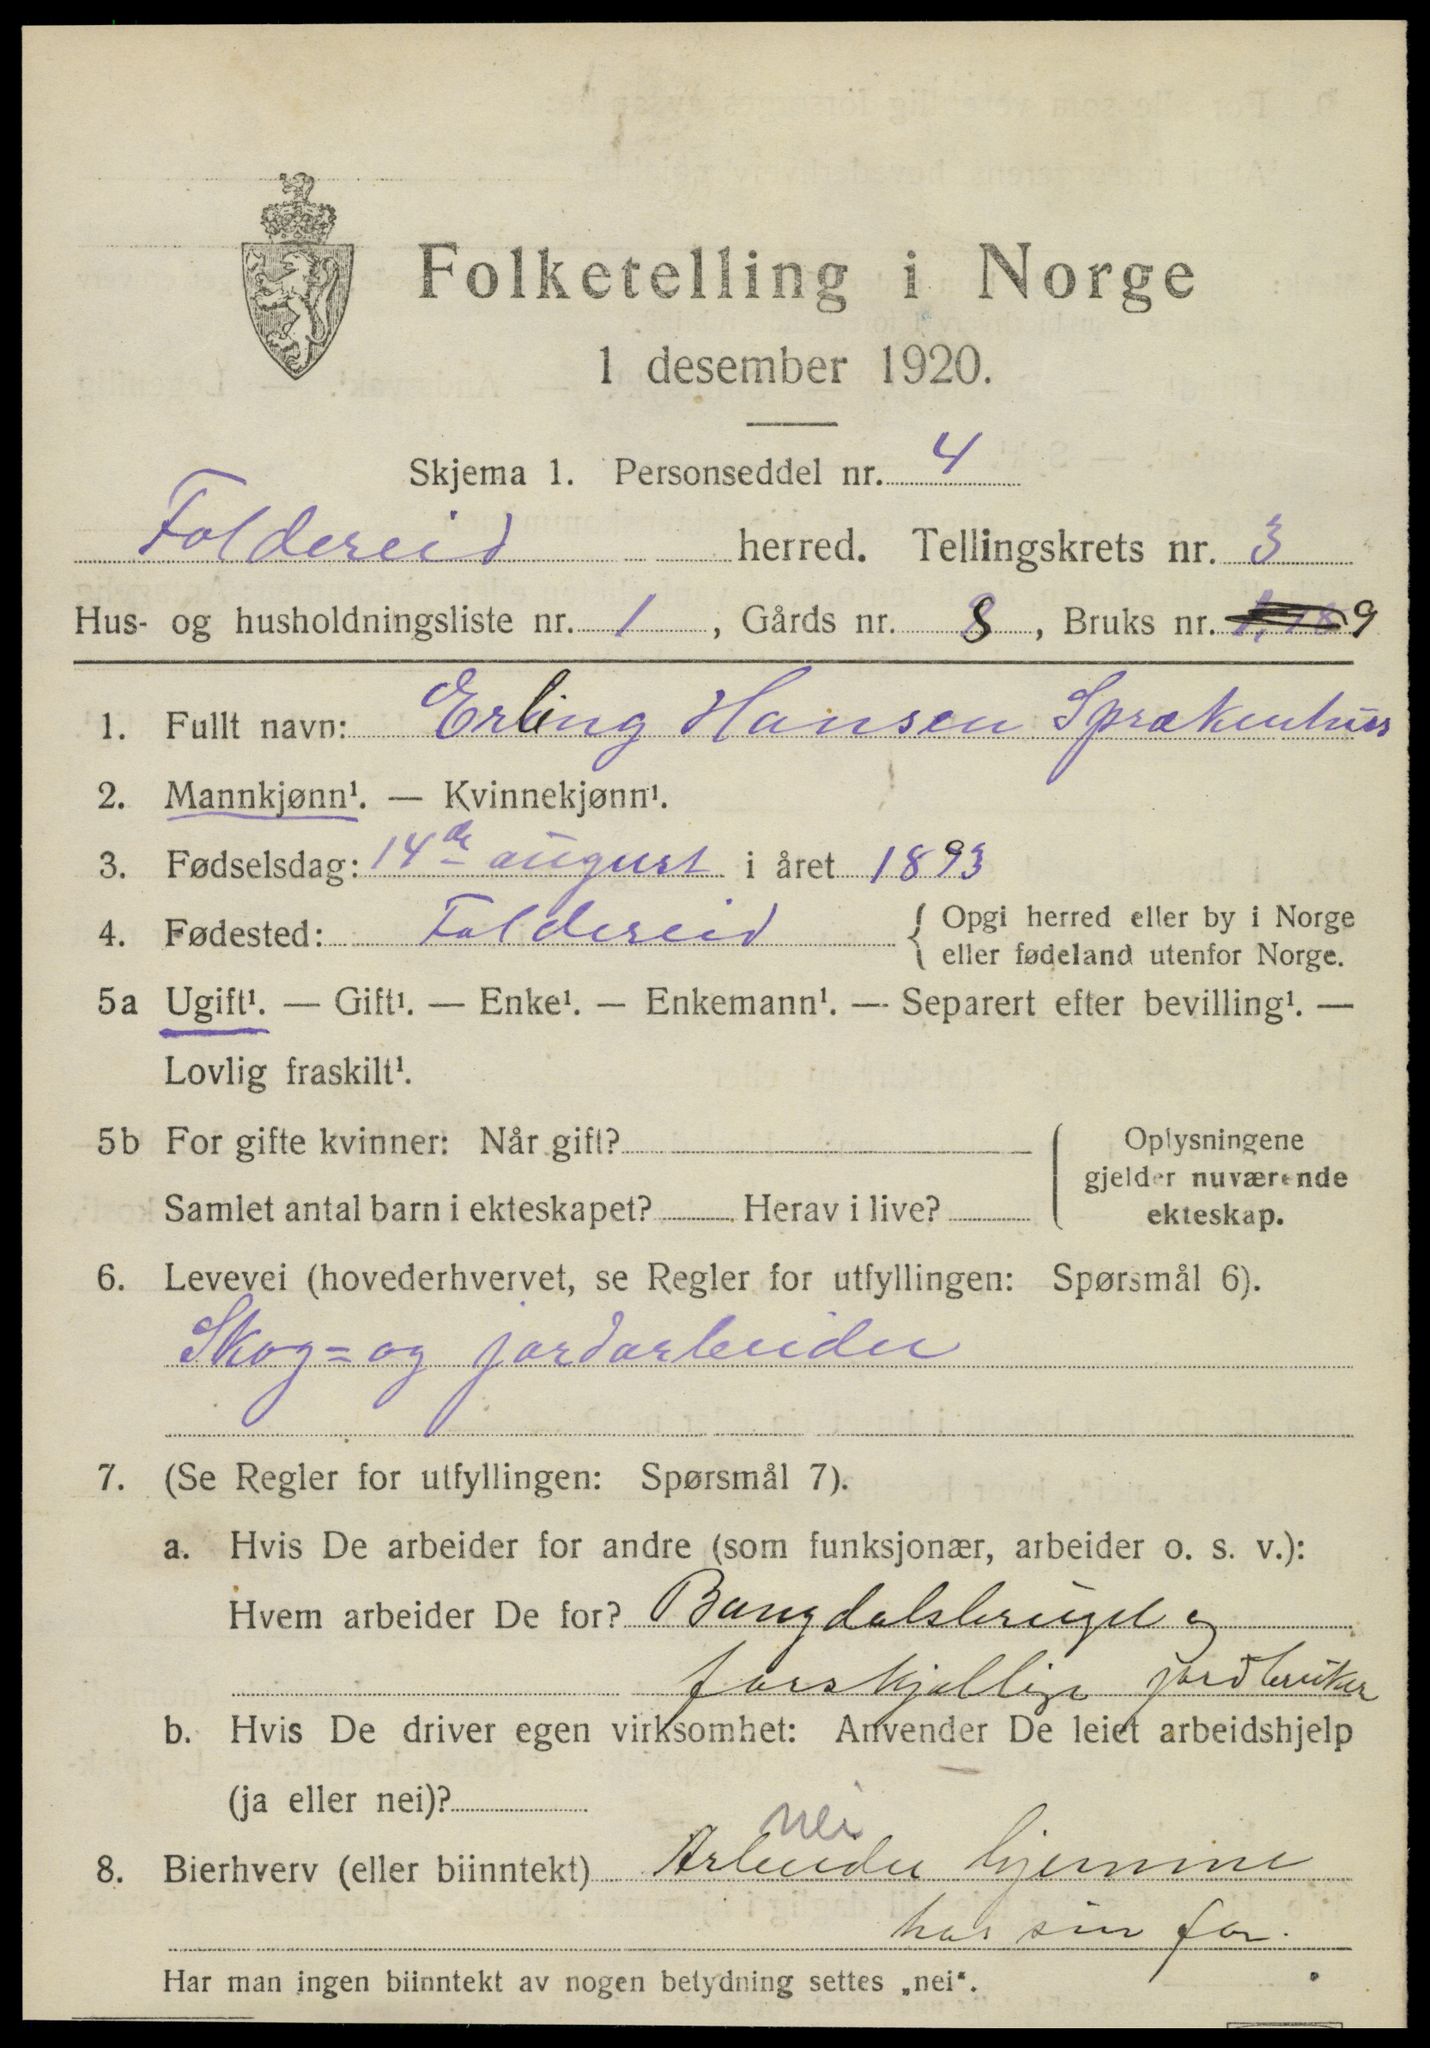 Folketelling i Norge
1 desember 1920.
Skjema 1. Personseddel nr. 4
Foldereid herred. Tellingskrets nr. 3
Hus- og husholdningsliste nr. 1, Gårds nr. 8, Bruks nr. 9
1. Fullt navn: Erling Hansen Sprækenhus
2. Mannkjønn¹. — Kvinnekjønn¹.
3. Fødselsdag: 14de august i året 1893
4. Fødested: Foldereid { Opgi herred eller by i Norge
eller fødeland utenfor Norge.
5a Ugift¹. — Gift¹. — Enke¹. — Enkemann¹. — Separert efter bevilling¹. —
Lovlig fraskilt¹.
5b For gifte kvinner: Når gift?
Samlet antal barn i ekteskapet? Herav i live?
Oplysningene
gjelder nuværende
ekteskap.
6. Levevei (hovederhvervet, se Regler for utfyllingen: Spørsmål 6).
Skog= og jordarbeider
7. (Se Regler for utfyllingen: Spørsmål 7).
a. Hvis De arbeider for andre (som funksjonær, arbeider o. s. v.):
Hvem arbeider De for? Bangdalsbruget og
forskjellige jordbruker
b. Hvis De driver egen virksomhet: Anvender De leiet arbeidshjelp
(ja eller nei)?
nei
8. Bierhverv (eller biinntekt) Arbeider hjemme
hos sin far.
Har man ingen biinntekt av nogen betydning settes „nei“.